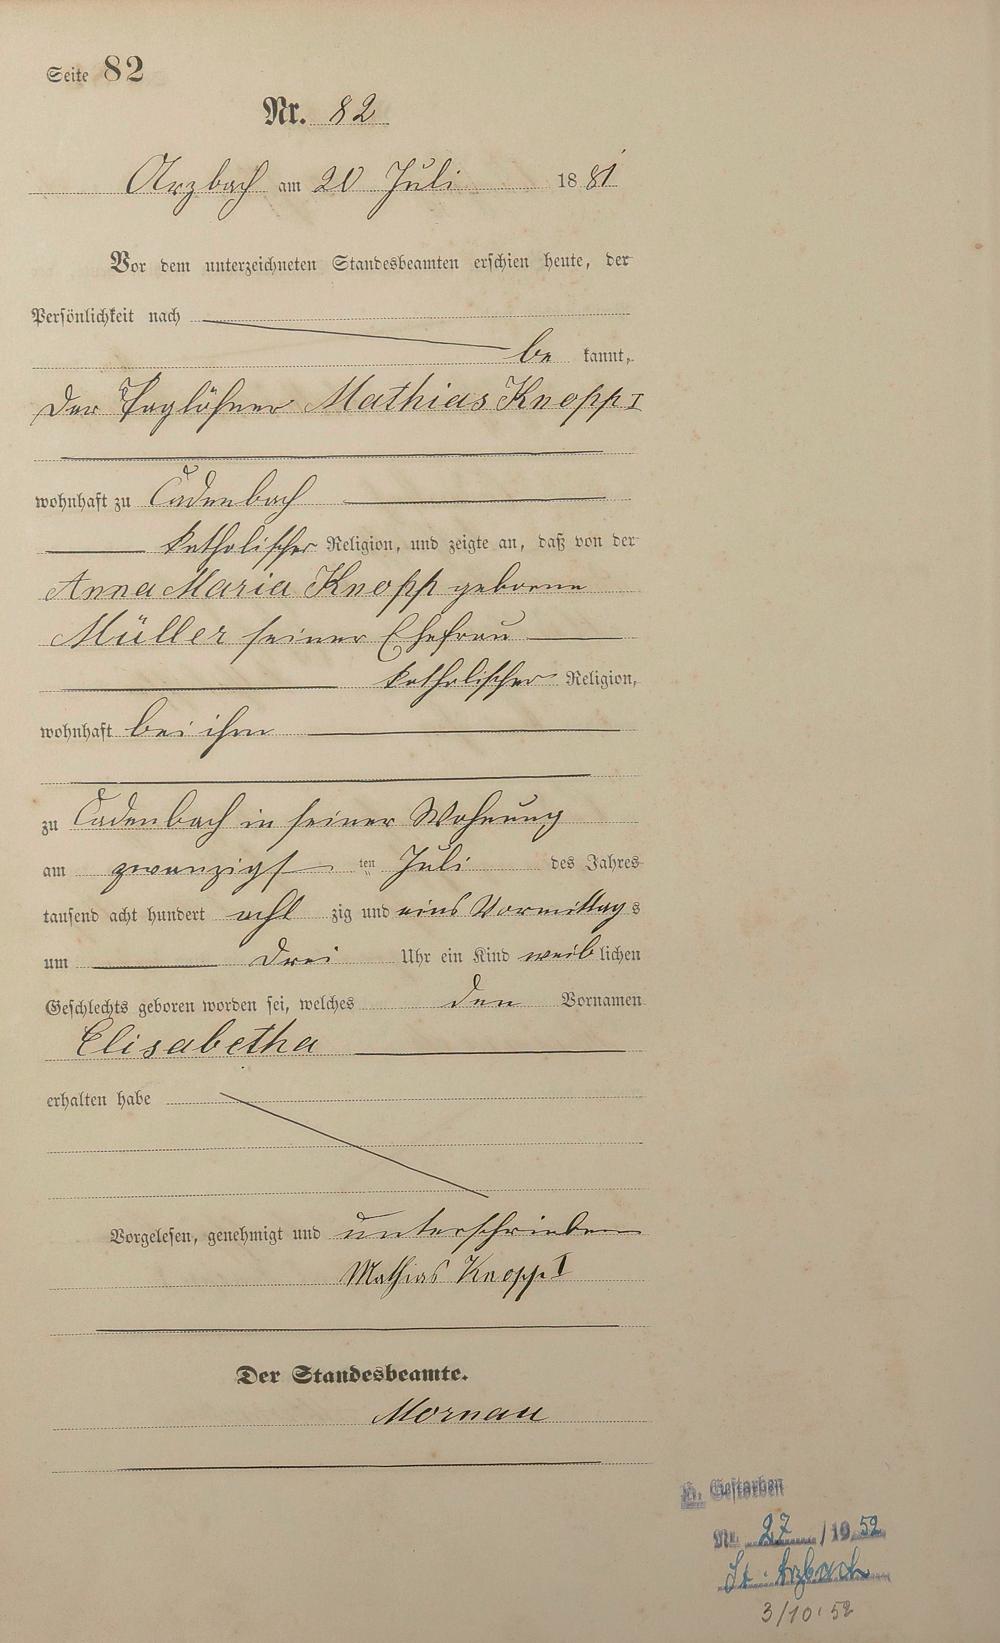 Seite 82
Nr. 82
Arzbach am 20 Juli 1881
Vor dem unterzeichneten Standesbeamten erschien heute, der
Persönlichkeit nach
be kannt,
der Taglöhner Mathias Knopp I
wohnhaft zu Cadenbach
katholischer Religion, und zeigte an, daß von der
Anna Maria Knopp geborne
Müller seiner Ehefrau
katholischer Religion,
wohnhaft bei ihm
zu Cadenbach in seiner Wohnung
am zwanzigst ten Juli des Jahres
tausend acht hundert acht zig und eins Vormittags
um drei Uhr ein Kind weiblichen
Geschlechts geboren worden sei, welches den Vornamen
Elisabetha
erhalten habe
Vorgelesen, genehmigt und unterschrieben
Mathias Knopp I
Der Standesbeamte.
Mornau
Gestorben
Nr. 27 / 1952
St. Arzbach
3/10.52